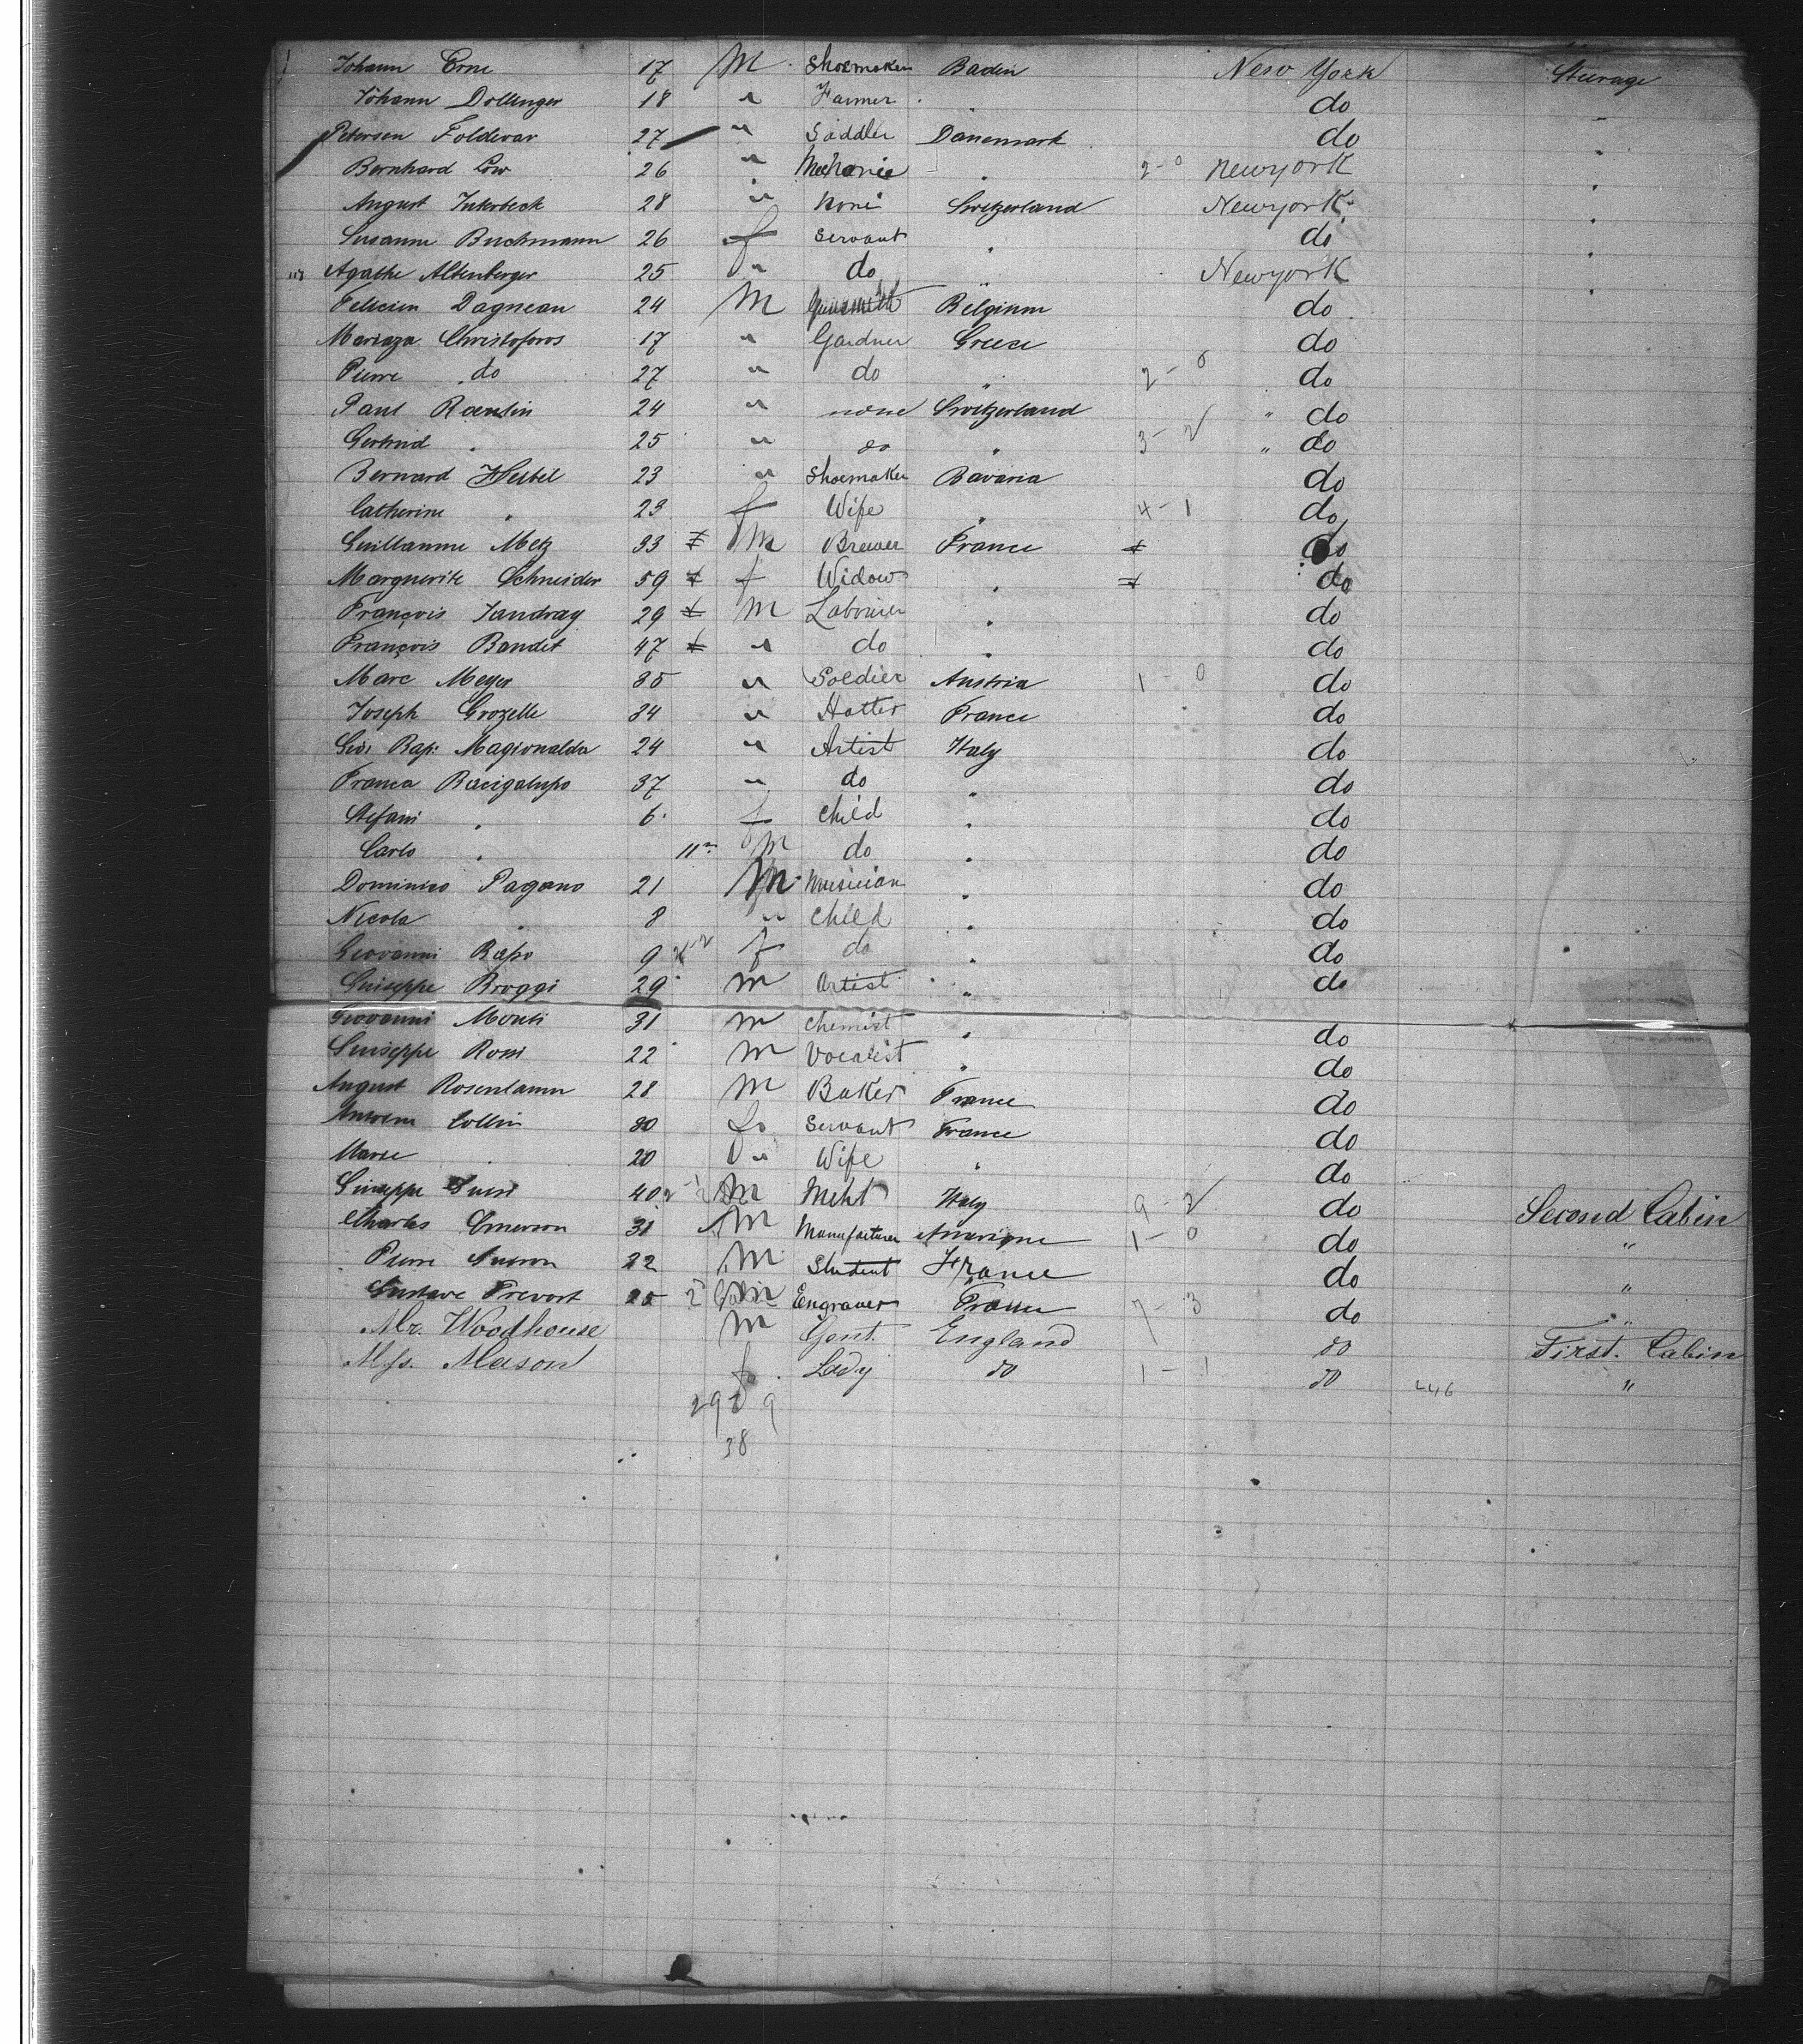 Johann Erne 17 M Shoemaker Baden New York Steerage
Johann Dollinger 18 " Farmer " do "
Petersen Foldevar 27 " Saddler Danemark do "
Bernhard Löw 26 " Mechanic " 2-0 Newyork "
August Interbeck 28 " None Switzerland Newyork "
Susanne Buchmann 26 f Servant " do "
Agathe Altenberger 25 " do " Newyork "
Felicien Dagneau 24 M Gunsmith Belgium do
Mariaza Christoforos 17 " Gardner Greece do
Pierre do 27 " do " 2-0 do
Paul Roenlin 24 " none Switzerland " do
Gertrud " 25 " do " 3-2 " do
Bernard Heibel 23 " Shoemaker Bavaria do
Catherine " 23 f Wife " 4-1 do
Guillaume Metz 33 M Brewer France do
Marguerite Schneider 59 f Widow " do
François Jandray 29 M Labourer " do
François Bandit 47 " do " do
Marc Meyer 35 " Soldier Austria 1-0 do
Joseph Grozelle 34 " Hatter France do
Giov. Bap. Magionalda 24 " Artist Italy do
Franca Bacigalupo 37 " do " do
Stefani " 6 f Child " do
Carlo " 11m M do " do
Dominico Pagano 21 M Musician " do
Nicola " 8 " Child " do
Giovanni Bapo 9 f do " do
Guiseppe Broggi 29 M Artist " do
Giovanni Monti 31 M Chemist " do
Guiseppe Rossi 22 M Vocalist " do
August Rosenlamm 28 M Baker France do
Collin 30 Servant France do
Marie " 20 " Wife " do
Giuseppe 40 M Meht Italy 9-2 do Second Cabin
Charles Emerson 31 M Manufacturer Amerique 1-0 do "
Pierre 22 M Student France do "
Gustave Prevost 25 M Engraver France 7-3 do "
Mr. Woodhouse M Gent. England do First. Cabin
Miss. Mason f Lady do 1-1 do 246 "
29 9
38